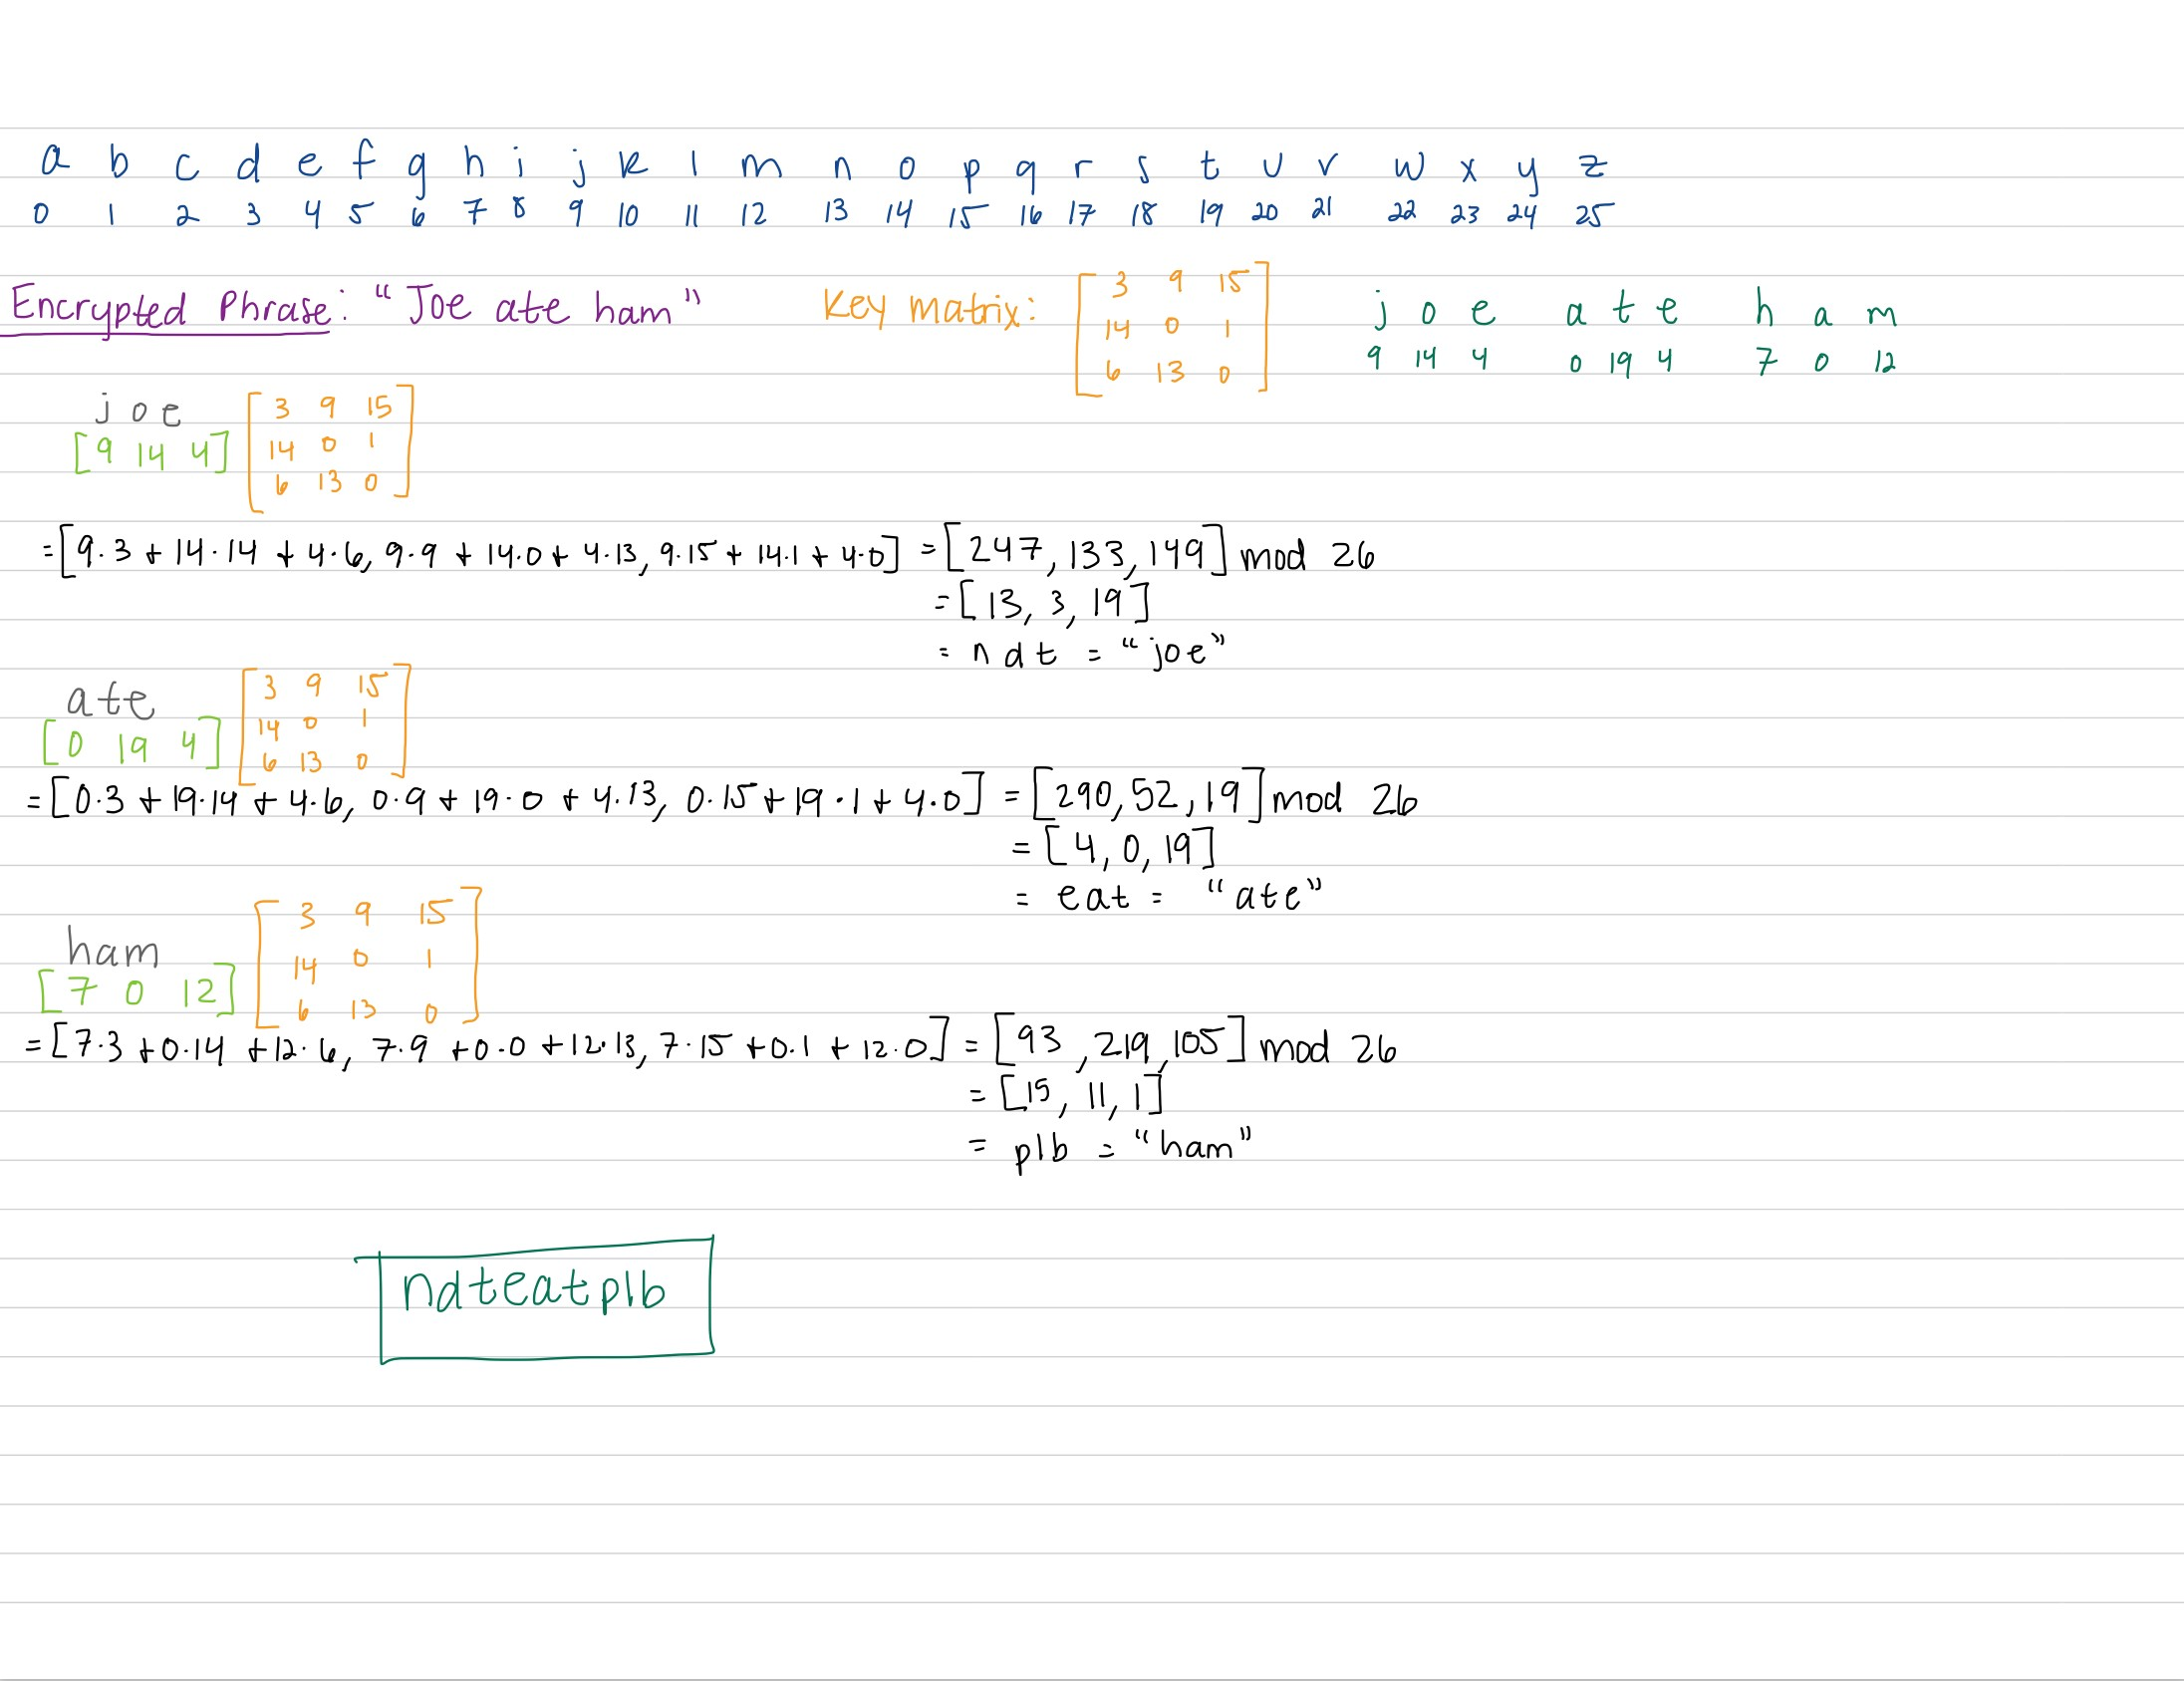 a b c d e f g h i j k l m n o p q r s t u v w x y z
0 1 2 3 4 5 6 7 8 9 10 11 12 13 14 15 16 17 18 19 20 21 22 23 24 25
Encrypted Phrase: "Joe ate ham"
Key matrix:
3 9 15
14 0 1
6 13 0
j o e a t e h a m
9 14 4 0 19 4 7 0 12
j o e
[9 14 4]
3 9 15
14 0 1
6 13 0
= [9·3 + 14·14 + 4·6, 9·9 + 14·0 + 4·13, 9·15 + 14·1 + 4·0] = [247, 133, 149] mod 26
= [13, 3, 19]
= n d t = "joe"
ate
[0 19 4]
3 9 15
14 0 1
6 13 0
= [0·3 + 19·14 + 4·6, 0·9 + 19·0 + 4·13, 0·15 + 19·1 + 4·0] = [290, 52, 19] mod 26
= [4, 0, 19]
= eat = "ate"
ham
[7 0 12]
3 9 15
14 0 1
6 13 0
= [7·3 + 0·14 + 12·6, 7·9 + 0·0 + 12·13, 7·15 + 0·1 + 12·0] = [93, 219, 105] mod 26
= [15, 11, 1]
= plb = "ham"
ndteatplb